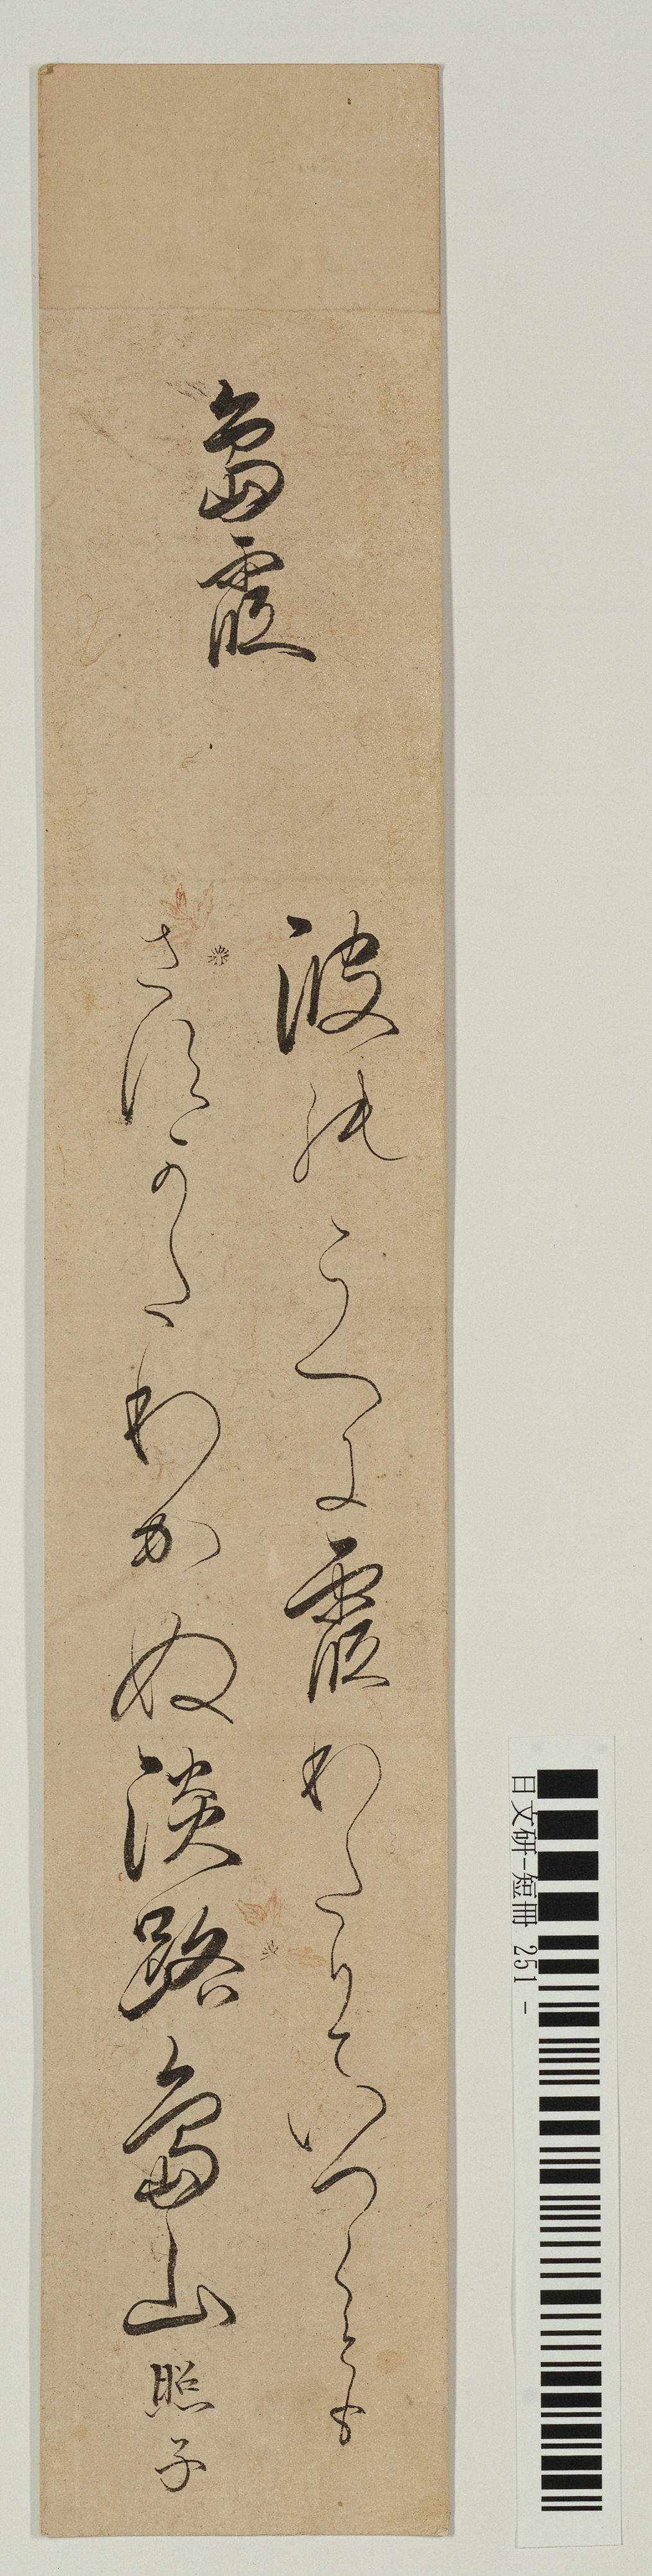 島霞
波のうへに霞わたりていつくとも
さすかたわかぬ淡路島山
照子
日文研-短冊 251-